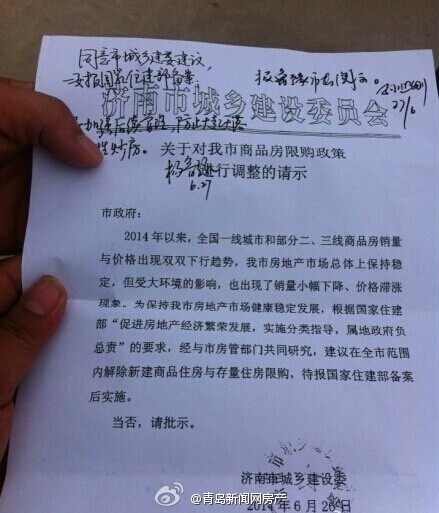 同意市城乡建委建议,
报国家住建部备案
报鲁豫市长阅示。
27/6
济南市城乡建设委员会
加强后续管理,防止大起大落
性炒房。
关于对我市商品房限购政策
杨鲁豫
进行调整的请示
6.27
市政府:
2014年以来,全国一线城市和部分二、三线商品房销量
与价格出现双双下行趋势,我市房地产市场总体上保持稳
定,但受大环境的影响,也出现了销量小幅下降、价格滞涨
现象。为保持我市房地产市场健康稳定发展,根据国家住建
部“促进房地产经济繁荣发展,实施分类指导,属地政府负
总责”的要求,经与市房管部门共同研究,建议在全市范围
内解除新建商品住房与存量住房限购,待报国家住建部备案
后实施。
当否,请批示。
济南市城乡建设委
2014年6月26日
@青岛新闻网房产